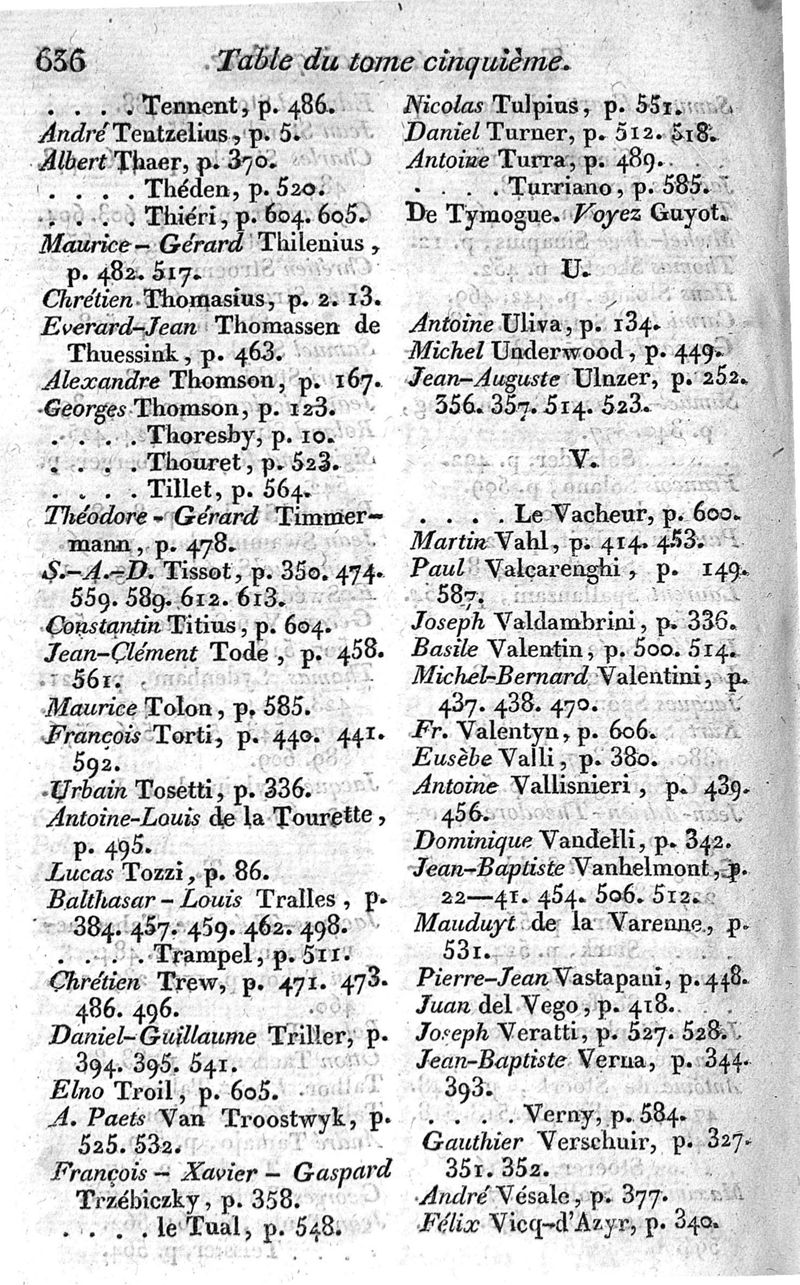 636 Table du tome cinquième.
. . . . Tennent, p. 486.
André Tentzelius, p. 5.
Albert Thaer, p. 370.
. . . . Théden, p. 520.
. . . . Thiéri, p. 604. 605.
Maurice – Gérard Thilenius,
p. 482. 517.
Chrétien Thomasius, p. 2. 13.
Everard-Jean Thomassen de
Thuessink, p. 463.
Alexandre Thomson, p. 167.
Georges Thomson, p. 123.
. . . . Thoresby, p. 10.
. . . . Thouret, p. 523.
. . . . Tillet, p. 564.
Théodore - Gérard Timmer-
mann, p. 478.
S.-A.-D. Tissot, p. 350. 474.
559. 589. 612. 613.
Constantin Titius, p. 604.
Jean-Clément Tode, p. 458.
561.
Maurice Tolon, p. 585.
François Torti, p. 440. 441.
592.
Urbain Tosetti, p. 336.
Antoine-Louis de la Tourette,
p. 495.
Lucas Tozzi, p. 86.
Balthasar – Louis Tralles, p.
384. 457. 459. 462. 498.
. . . . Trampel, p. 511.
Chrétien Trew, p. 471. 473.
486. 496.
Daniel-Guillaume Triller, p.
394. 395. 541.
Elno Troil, p. 605.
A. Paets Van Troostwyk, p.
525. 532.
François – Xavier – Gaspard
Trzébiczky, p. 358.
. . . . le Tual, p. 548.
Nicolas Tulpius, p. 551.
Daniel Turner, p. 512. 518.
Antoine Turra, p. 489.
. . . . Turriano, p. 585.
De Tymogue. Voyez Guyot.
U.
Antoine Uliva, p. 134.
Michel Underwood, p. 449.
Jean-Auguste Ulnzer, p. 252.
356. 357. 514. 523.
V.
. . . . Le Vacheur, p. 600.
Martin Vahl, p. 414. 453.
Paul Valcarenghi, p. 149.
587.
Joseph Valdambrini, p. 336.
Basile Valentin, p. 500. 514.
Michel-Bernard Valentini, p.
437. 438. 470.
Fr. Valentyn, p. 606.
Eusèbe Valli, p. 380.
Antoine Vallisnieri, p. 439.
456.
Dominique Vandelli, p. 342.
Jean-Baptiste Vanhelmont, p.
22—41. 454. 506. 512.
Mauduyt de la Varenne, p.
531.
Pierre-Jean Vastapani, p. 448.
Juan del Vego, p. 418.
Joseph Veratti, p. 527. 528.
Jean-Baptiste Verna, p. 344.
393.
. . . . Verny, p. 584.
Gauthier Verschuir, p. 327.
351. 352.
André Vésale, p. 377.
Félix Vicq-d'Azyr, p. 340.